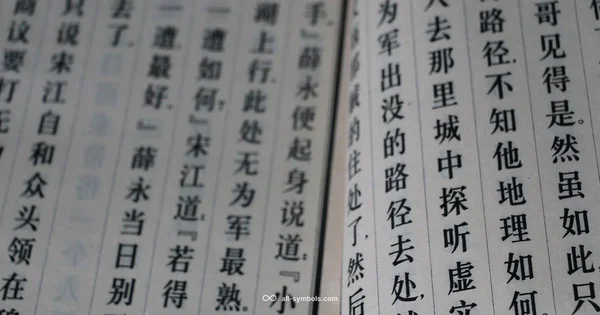 哥见得是。然虽如此，只
路径，不知他地理如何
去那里城中探听虚实
为军出没的路径去处，
的住处了，然后
手。』薛永便起身说道：『小
湖上行。此处无为军最熟。
一遭如何？』宋江道：『若得
一遭最好。』薛永当日别
去了。
只说宋江自和众头领在
商议要打无
all-symbols.com